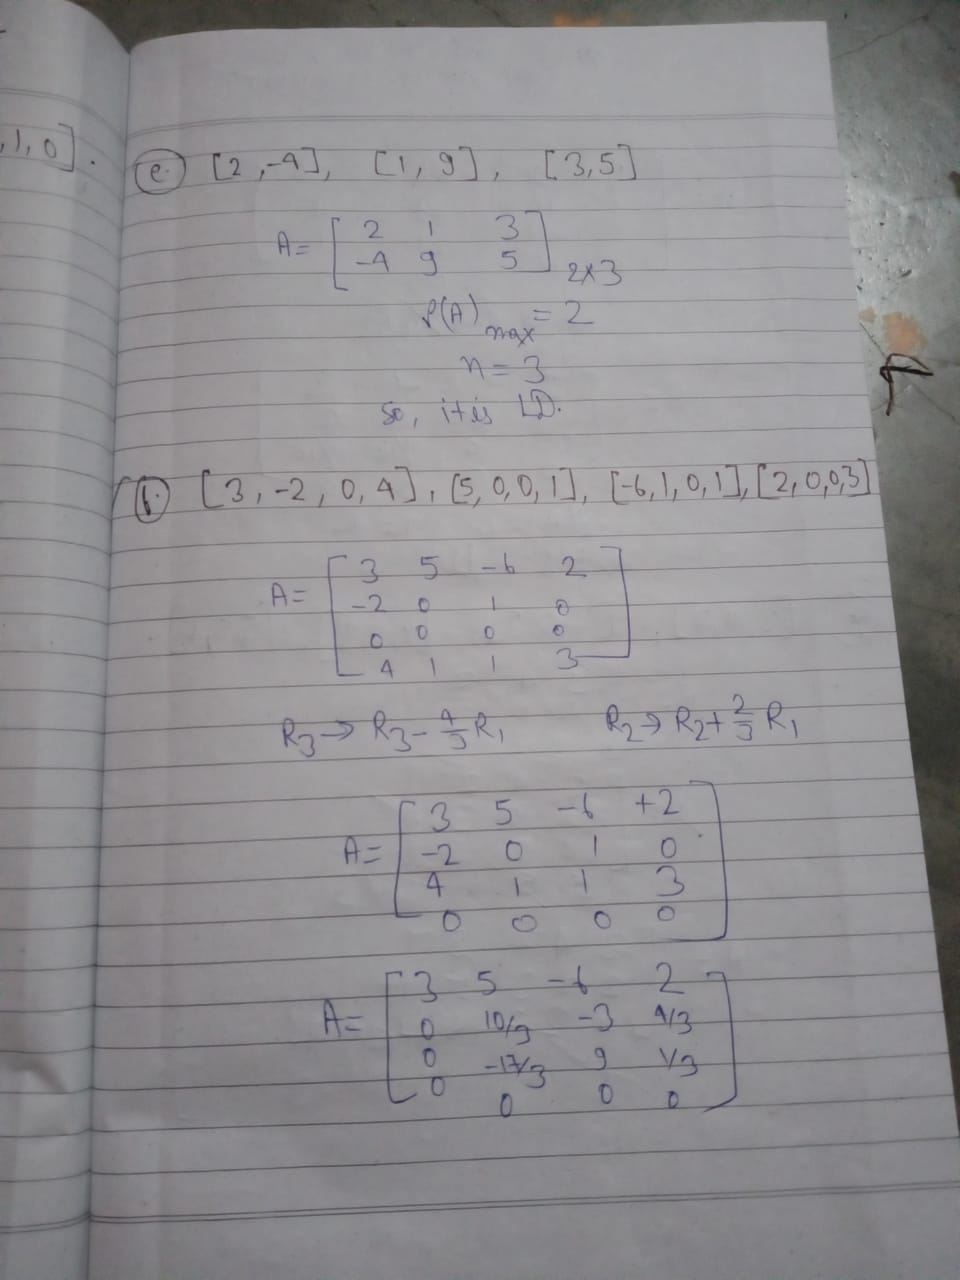 ,1,0].
e. [2,-4], [1,9], [3,5]
A= [ 2 1 3
-4 9 5 ] 2x3
ρ(A) max = 2
n = 3
So, it is LD.
f. [3,-2,0,4], [5,0,0,1], [-6,1,0,1], [2,0,0,3]
A= [ 3 5 -6 2
-2 0 1 0
0 0 0 0
4 1 1 3 ]
R3→ R3- 4/3 R1 R2→ R2+ 2/3 R1
A= [ 3 5 -6 +2
-2 0 1 0
4 1 1 3
0 0 0 0 ]
A= [ 3 5 -6 2
0 10/3 -3 4/3
0 -17/3 9 1/3
0 0 0 0 ]